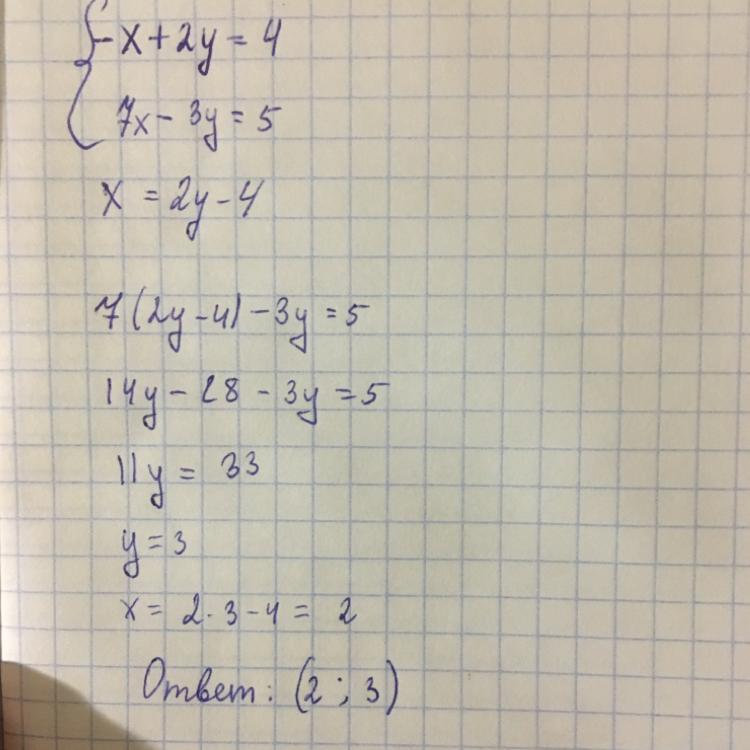 -x+2y=4
7x-3y=5
x=2y-4
7(2y-4)-3y=5
14y-28-3y=5
11y=33
y=3
x=2·3-4=2
Ответ: (2; 3)